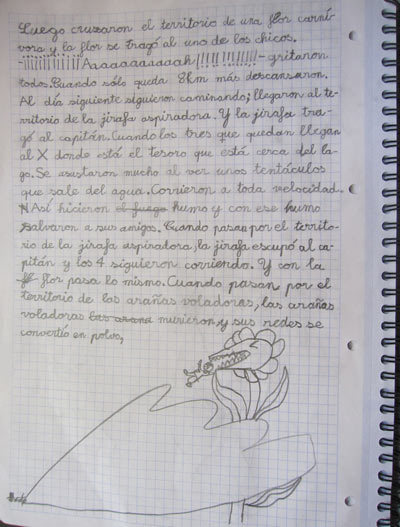 Luego cruzaron el territorio de una flor carní-
vora y la flor se tragó al uno de los chicos.
-¡¡¡¡¡¡¡¡¡¡¡¡¡¡Aaaaaaaaaaah!!!!!!!!!!!!!-gritaron
todos. Cuando sólo queda 8km más descansaron.
Al día siguiente siguieron caminando; llegaron al te-
rritorio de la jirafa aspiradora. Y la jirafa tra-
gó al capitán. Cuando los tres que quedan llegan
al X donde está el tesoro que está cerca del la-
go. Se asustaron mucho al ver unos tentáculos
que sale del agua. Corrieron a toda velocidad.
Así hicieron el fuego humo y con ese humo
salvaron a sus amigos. Cuando pasan por el territo-
rio de la jirafa aspiradora, la jirafa escupió al ca-
pitán y los 4 siguieron corriendo. Y con la
flor pasa lo mismo. Cuando pasan por el
territorio de las arañas voladoras, las arañas
voladoras las arana murieron y sus redes se
convertío en polvo,